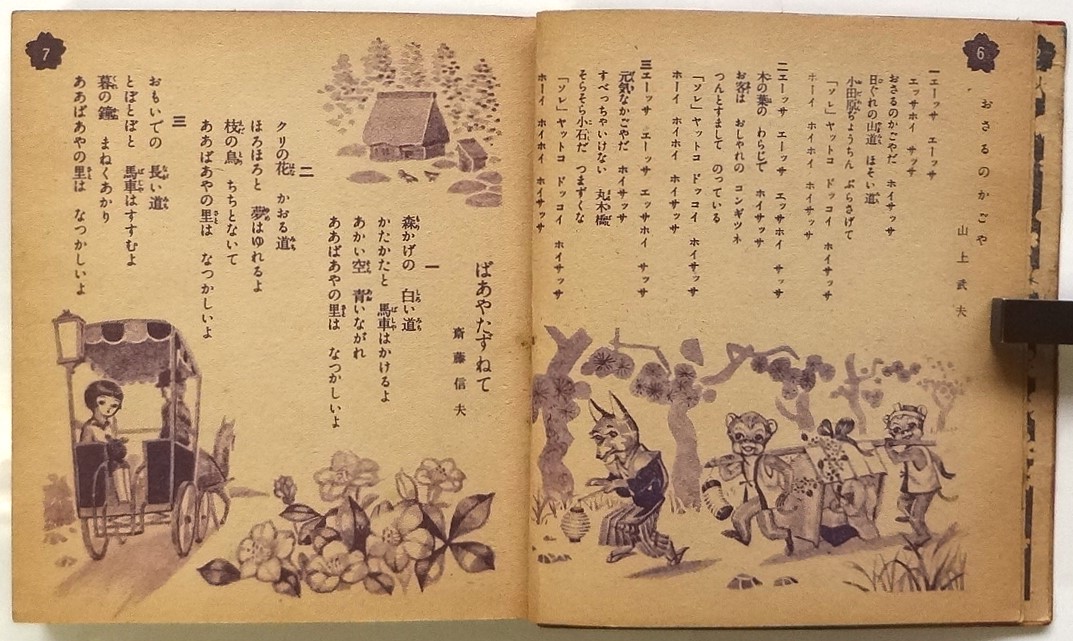 6
おさるのかごや
山上武夫
一 エーッサ エーッサ
エッサホイ サッサ
おさるのかごやだ ホイサッサ
日ぐれの山道 ほそい道
小田原ぢょうちん ぶらさげて
「ソレ」ヤットコ ドッコイ ホイサッサ
ホーイ ホイホイ ホイサッサ
二 エーッサ エーッサ エッサホイ サッサ
木の葉の わらじで ホイサッサ
お客は おしゃれの コンギツネ
つんとすまして のっている
「ソレ」ヤットコ ドッコイ ホイサッサ
ホーイ ホイホイ ホイサッサ
三 エーッサ エーッサ エッサホイ サッサ
元気なかごやだ ホイサッサ
すべっちゃいけない 丸木橋
そらそら小石だ つまずくな
「ソレ」ヤットコ ドッコイ ホイサッサ
ホーイ ホイホイ ホイサッサ
7
ばあやたずねて
斎藤信夫
一
森かげの 白い道
かたかたと 馬車はかけるよ
あかい空 青いながれ
ああばあやの里は なつかしいよ
二
クリの花 かおる道
ほろほろと 夢はゆれるよ
枝の鳥 ちちとないて
ああばあやの里は なつかしいよ
三
おもいでの 長い道
とぼとぼと 馬車はすすむよ
暮の鐘 まねくあかり
ああばあやの里は なつかしいよ